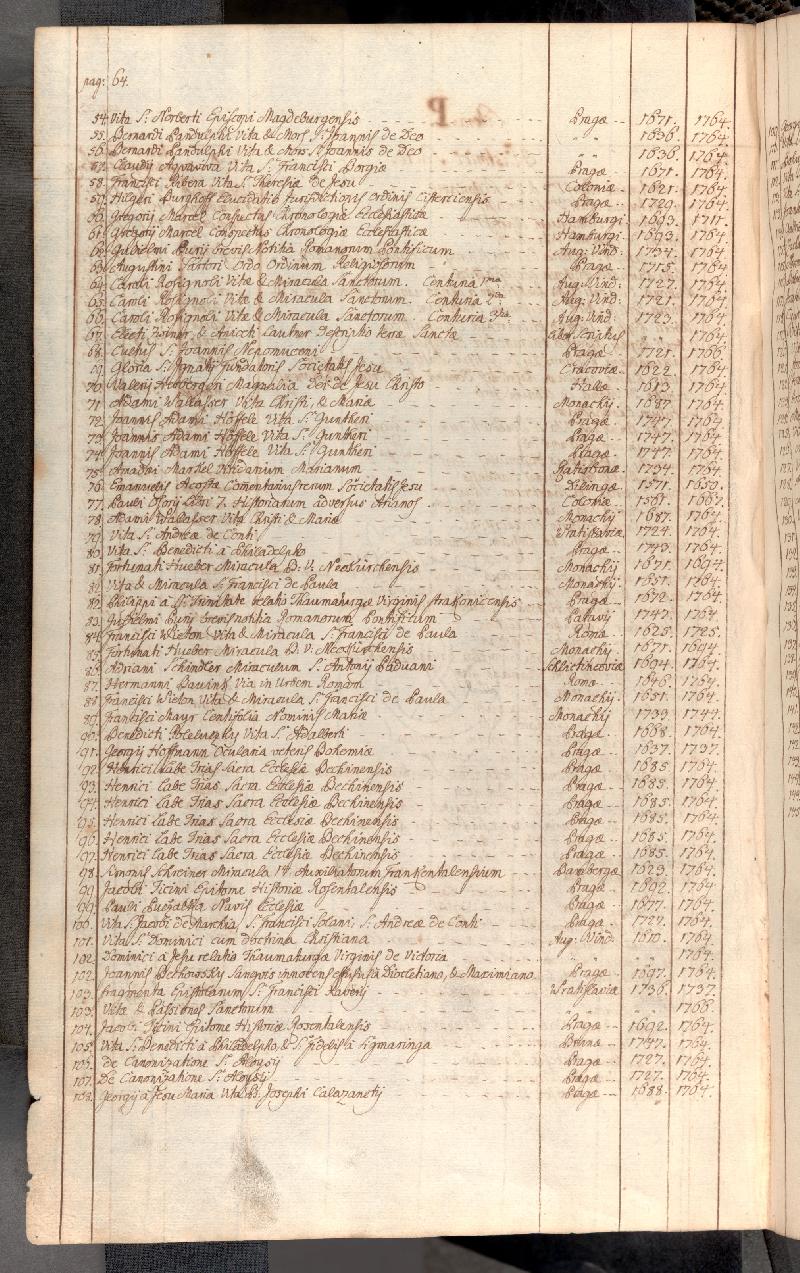 pag: 64.
54. Vita S. Norberti Episcopi Magdeburgensis Pragæ 1671. 1764.
55. Bernardi Pandulphi Vita & Mors S. Joannis de Deo " " 1636. 1764.
56. Bernardi Pandulphi Vita & Mors S. Joannis de Deo " " 1636. 1764.
57. Claudij Aquaviva Vita S. Francisci Borgiæ Pragæ 1671. 1764.
58. Francisci Ribera Vita S. Theresiæ de Jesu Coloniæ 1621. 1764.
59. Hilgeri Burghoff Elucidatio Jurisdictionis Ordinis Cisterciensis Pragæ 1729. 1764.
60. Gregorij Marcel Conspectus Chronologiæ Ecclesiasticæ Hamburgi 1693. 1711.
61. Gregorij Marcel Conspectus Chronologiæ Ecclesiasticæ Hamburgi 1693. 1764.
62. Guilielmi Burij brevis Notitia Romanorum Pontificum Aug: Vind: 1734. 1764.
63. Augustini Sartori Ordo Ordinum Religiosorum Pragæ 1715. 1764.
64. Caroli Rosignoli Vitæ & Miracula Sanctorum. Centuria 1ma Aug: Vind: 1727. 1764.
65. Caroli Rosignoli Vitæ & Miracula Sanctorum. Centuria 2da Aug: Vind: 1721. 1764.
66. Caroli Rosignoli Vitæ & Miracula Sanctorum. Centuria 3tia Aug: Vind: 1723. 1764.
67. Electi Zwiner, & Aniceti Lautner Descriptio terræ Sanctæ Liber Scriptus " 1764.
68. Cultus S. Joannis Nepomuceni Pragæ 1721. 1766.
69. Gloria S. Ignatij fundatoris Societatis Jesu Cracoviæ 1622. 1764.
70. Valerij Herbergeri Magnalia Dei de Jesu Christo Hallæ 1613. 1764.
71. Adami Wallasser Vita Christi, & Mariæ Monachij 1687. 1764.
72. Joannis Adami Höffele Vita S. Guntheri Pragæ 1747. 1764.
73. Joannis Adami Höffele Vita S. Guntheri Pragæ 1747. 1764.
74. Joannis Adami Höffele Vita S. Guntheri Pragæ 1747. 1764.
75. Amadei Markel Viridarium Marianum Ratisbonæ 1734. 1764.
76. Emanuelis Acosta Comentarius rerum Societatis Jesu Dilingæ 1571. 1650.
77. Pauli Osorij Libri 7. Historiarum adversus Arianos Coloniæ 1561. 1667.
78. Adami Walasser Vita Christi & Mariæ Monachij 1687. 1764.
79. Vita S. Andreæ de Conti Wratislaviæ 1724. 1764.
80. Vita S. Benedicti à Philadelpho Pragæ 1743. 1764.
81. Fortunati Hueber Miracula B: V: Neokürchensis Monachij 1671. 1694.
81. Vita & Miracula S. Francisci de Paula Monachij 1651. 1764.
82. Philippi à SS. Trinitate relatio Thaumaturgæ Virginis Strakonicensis Pragæ 1672. 1764.
83. Guilielmi Burij brevis notitia Romanorum Pontificum Patavij 1747. 1764.
84. Francisci Wieton Vita & Miracula S. Francisci de Paula Romæ 1625. 1725.
85. Fortunati Hueber Miracula B. V. Neokürchensis Monachij 1671. 1694.
86. Adriani Schindler Miraculum S. Antonij Paduani 1694. 1764.
87. Hermanni Bavink Via in Urbem Romam Romæ 1646. 1764.
88. Francisci Wieton Vita & Miracula S. Francisci de Paula Monachij 1651. 1764.
89. Francisci Mayr Centifolia Nominis Mariæ Monachij 1733. 1744.
90. Benedicti Boleluczky Vita S. Adalberti Pragæ 1668. 1764.
91. Georgij Hoffmann Ocularia veteris Bohemiæ Pragæ 1637. 1737.
92. Henrici Labe Trias Sacra Ecclesiæ Bechinensis Pragæ 1685. 1764.
93. Henrici Labe Trias Sacra Ecclesiæ Bechinensis Pragæ 1685. 1764.
94. Henrici Labe Trias Sacra Ecclesiæ Bechinensis Pragæ 1685. 1764.
95. Henrici Labe Trias Sacra Ecclesiæ Bechinensis Pragæ 1685. 1764.
96. Henrici Labe Trias Sacra Ecclesiæ Bechinensis Pragæ 1685. 1764.
97. Henrici Labe Trias Sacra Ecclesiæ Bechinensis Pragæ 1685. 1764.
98. Simonis Schreiner Miracula 14 Auxiliatorum Frankentalensium Bambergæ 1623. 1764.
99. Jacobi Ticini Epitome Historiæ Rosentalensis Pragæ 1692. 1764.
99. Pauli Navis Ecclesiæ Pragæ 1677. 1764.
100. Vita S. Jacobi de Marchia, S. Francisci Solani, S. Andreæ de Conti Pragæ 1727. 1764.
101. Vita S. Dominici cum doctrina Christiana Aug: Vind: 1610. 1764.
102. Dominici à Jesu relatio Thaumaturgæ Virginis de Victoria " " 1764.
102. Joannis Beckovssky Sangvis innocens effusus à Diocletiano, & Maximiano Pragæ 1697. 1764.
103. Fragmenta Epistolarum S. Francisci Xaverij Wratislaviæ 1736. 1737.
103. Vitæ & Passiones Sanctorum " " 1766.
104. Jacobi Ticini Epitome Historiæ Rosentalensis Pragæ 1692. 1764.
105. Vita S. Benedicti à Philadelpho, & S. Fidelis à Sigmaringa Brunæ 1747. 1764.
106. de Canonizatione S. Aloysij Pragæ 1727. 1764.
107. De Canonizatione S. Aloysij Pragæ 1727. 1764.
108. Georgij à Jesu Maria Vita B. Josephi Calazanctij Pragæ 1688. 1764.